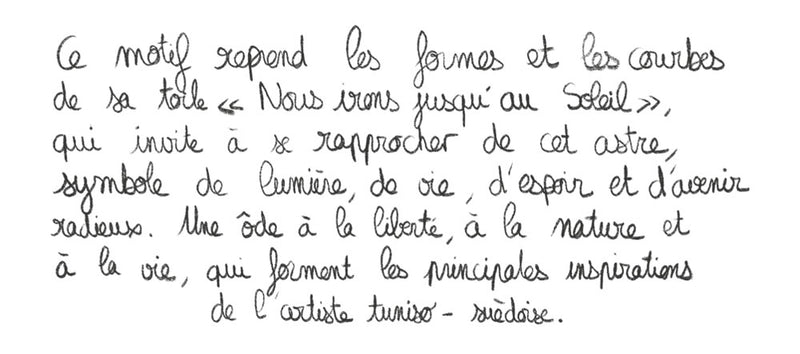 Ce motif reprend les formes et les courbes
de sa toile « Nous irons jusqu'au Soleil »,
qui invite à se rapprocher de cet astre,
symbole de lumière, de vie, d'espoir et d'avenir
radieux. Une ôde à la liberté, à la nature et
à la vie, qui forment les principales inspirations
de l'artiste tuniso-suèdoise.